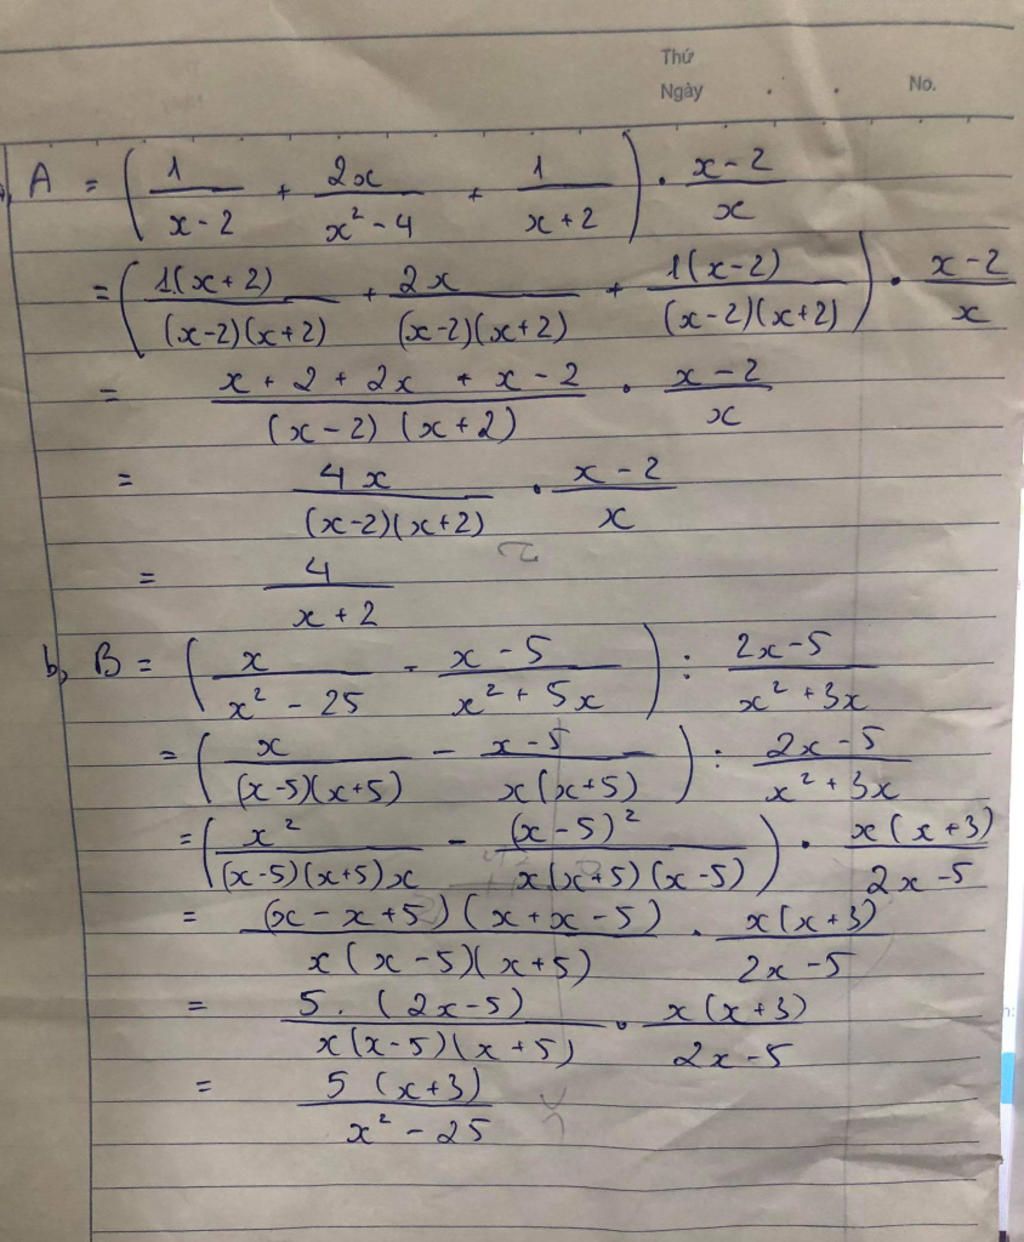 Thứ
Ngày . . No.
A = ( 1/(x-2) + 2x/(x²-4) + 1/(x+2) ) . (x-2)/x
= ( 1.(x+2)/((x-2)(x+2)) + 2x/((x-2)(x+2)) + 1(x-2)/((x-2)(x+2)) ) . (x-2)/x
= (x+2+2x+x-2)/((x-2)(x+2)) . (x-2)/x
= 4x/((x-2)(x+2)) . (x-2)/x
= 4/(x+2)
b, B = ( x/(x²-25) - (x-5)/(x²+5x) ) : (2x-5)/(x²+3x)
= ( x/((x-5)(x+5)) - (x-5)/(x(x+5)) ) : (2x-5)/(x²+3x)
= ( x²/((x-5)(x+5)x) - (x-5)²/(x(x+5)(x-5)) ) . x(x+3)/(2x-5)
= (x-x+5)(x+x-5)/(x(x-5)(x+5)) . x(x+3)/(2x-5)
= 5.(2x-5)/(x(x-5)(x+5)) . x(x+3)/(2x-5)
= 5(x+3)/(x²-25)